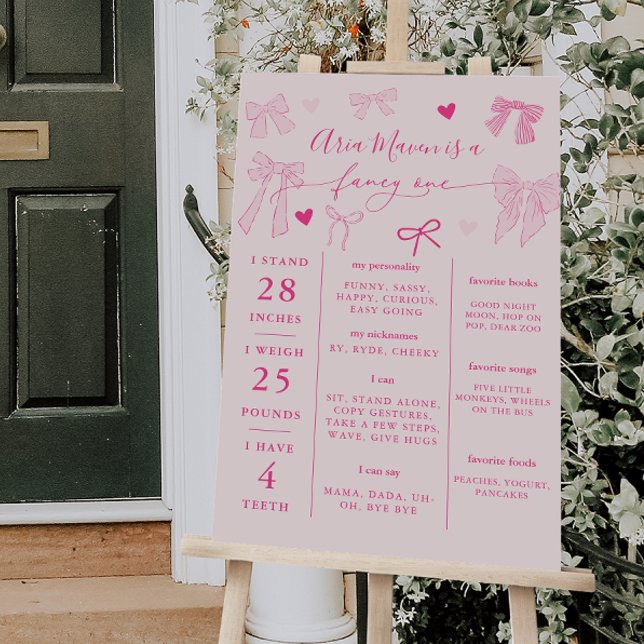 Aria Maven is a
fancy one
I STAND
28
INCHES
I WEIGH
25
POUNDS
I HAVE
4
TEETH
my personality
FUNNY, SASSY,
HAPPY, CURIOUS,
EASY GOING
my nicknames
RY, RYDE, CHEEKY
I can
SIT, STAND ALONE,
COPY GESTURES,
TAKE A FEW STEPS,
WAVE, GIVE HUGS
I can say
MAMA, DADA, UH-
OH, BYE BYE
favorite books
GOOD NIGHT
MOON, HOP ON
POP, DEAR ZOO
favorite songs
FIVE LITTLE
MONKEYS, WHEELS
ON THE BUS
favorite foods
PEACHES, YOGURT,
PANCAKES